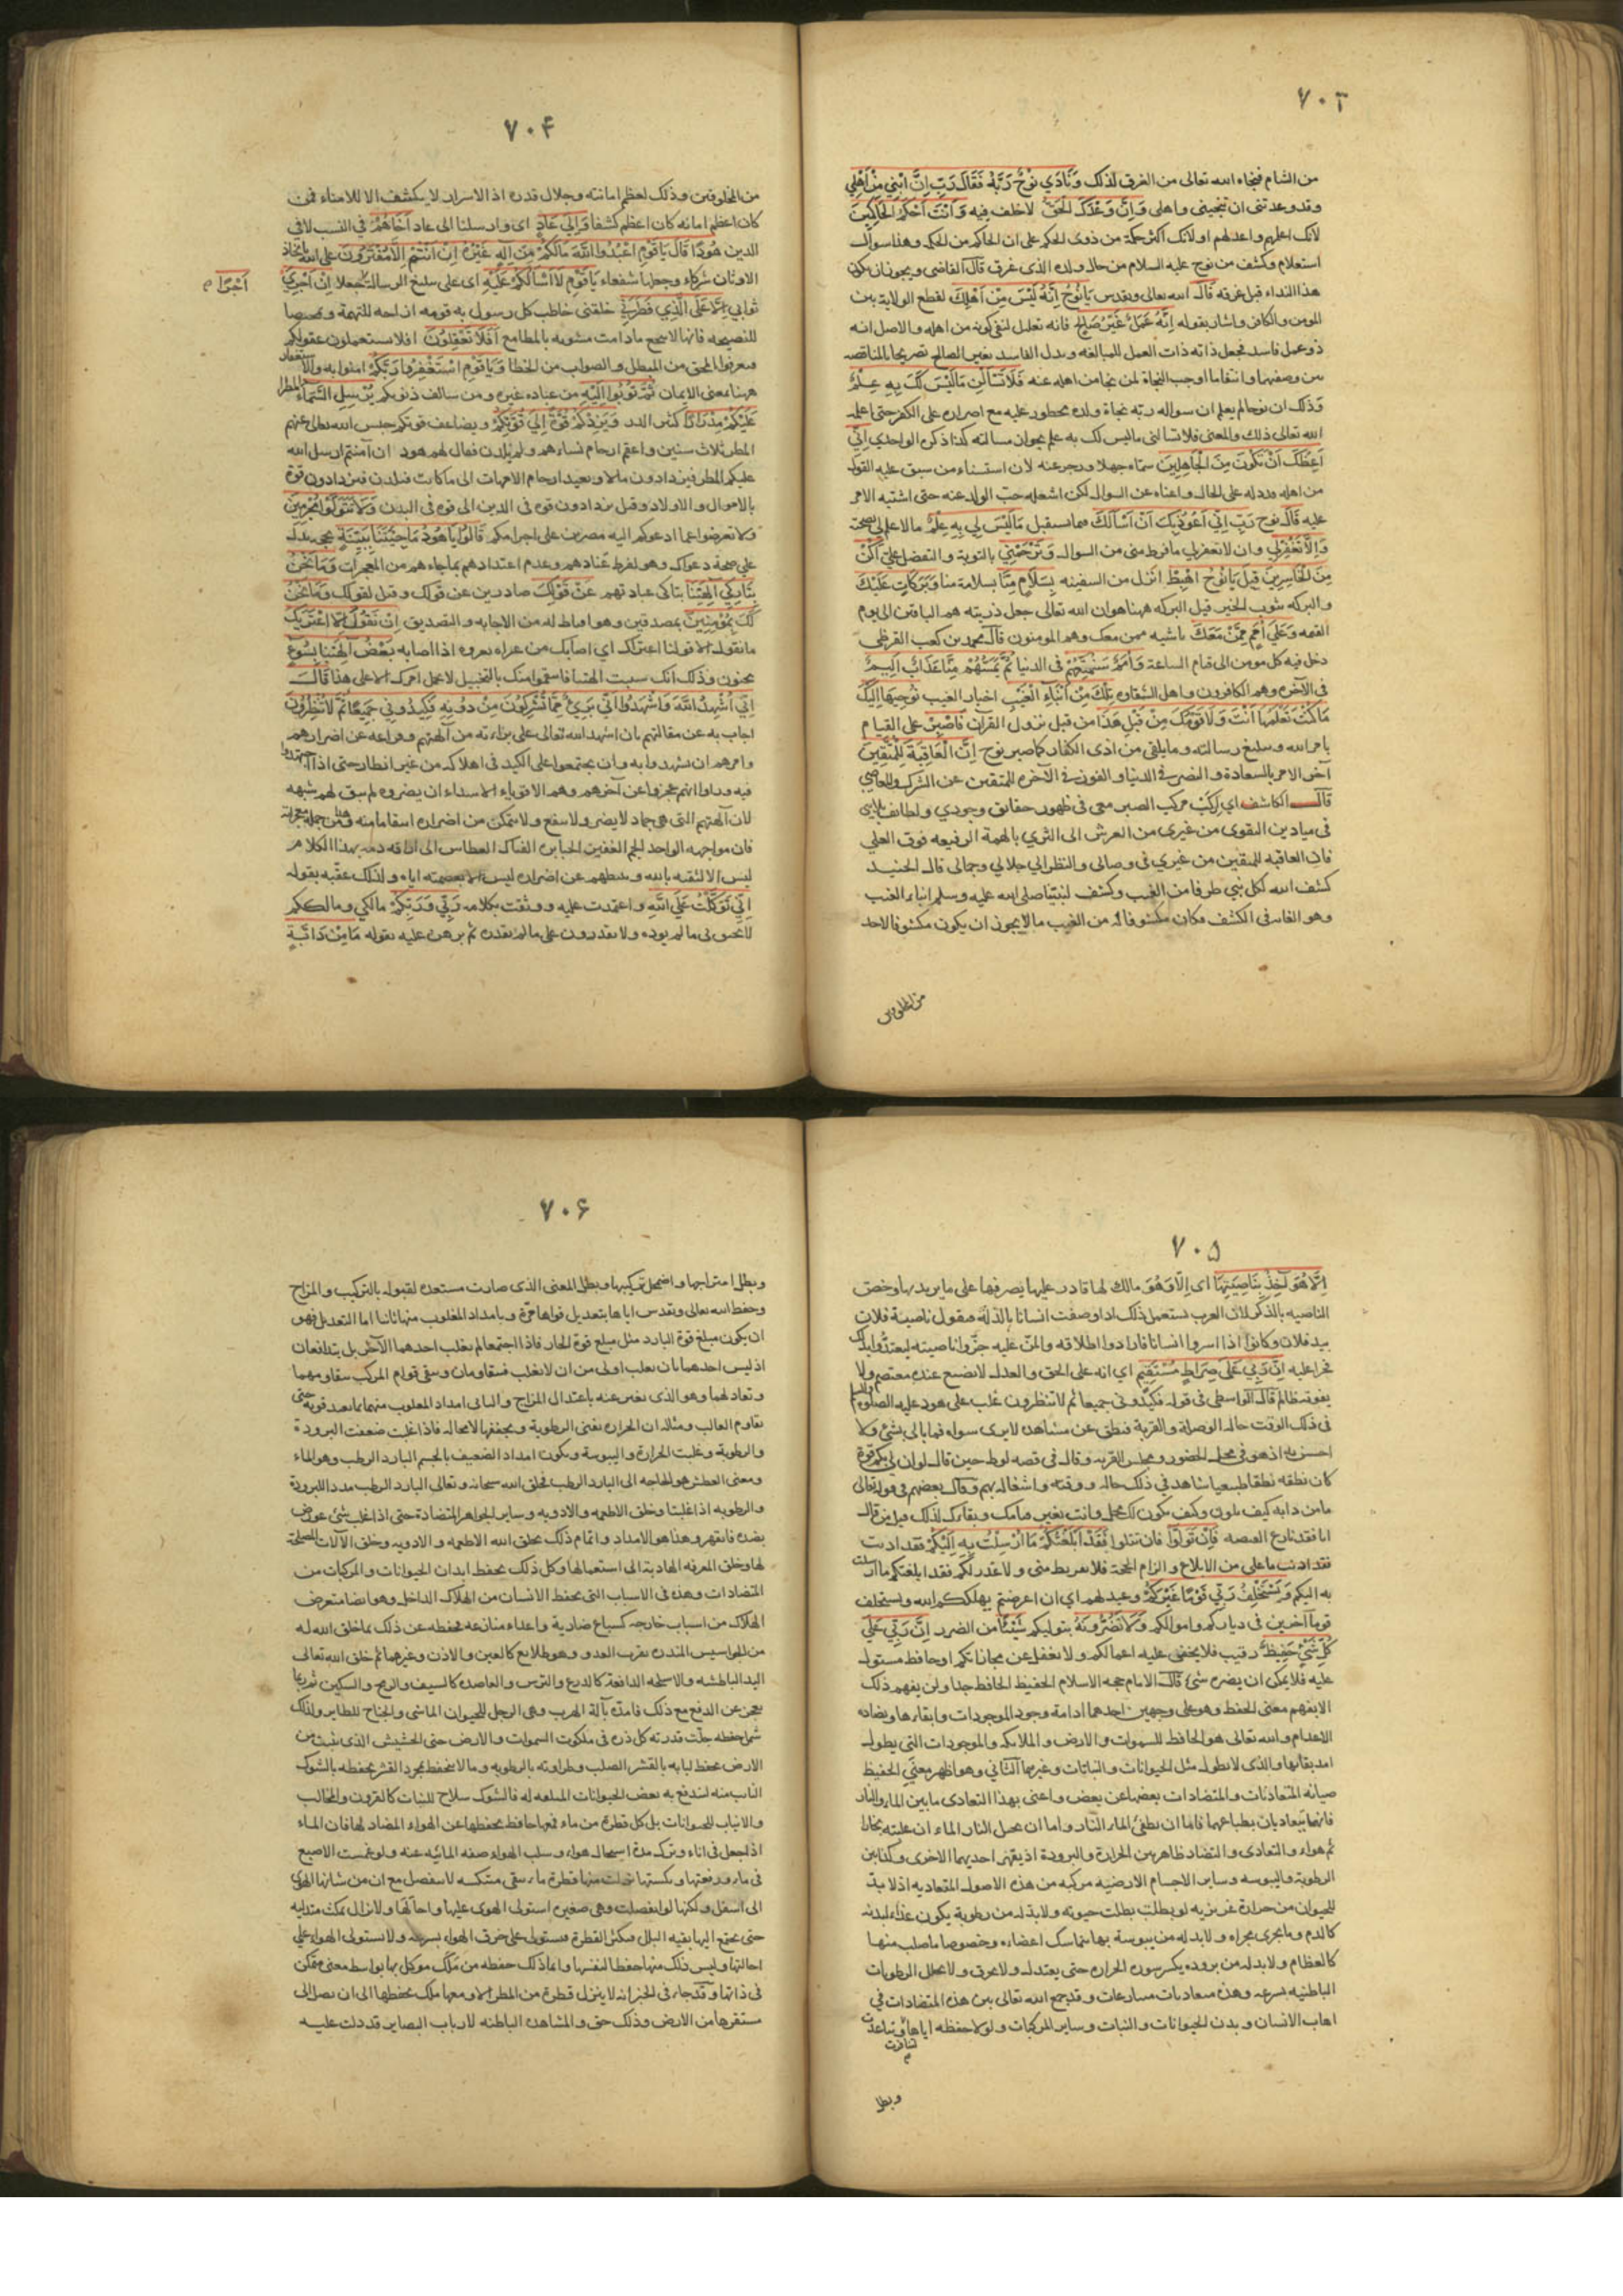 ٧٠٣
من الشام فنجاه الله تعالى من الغرق لذلك وَنَادَي نُوحٌ رَبَّهُ فَقَالَ رَبِّ اِنَّ ابْنِي مِنْ اَهْلِي
وقد وعدتنى ان تنجينى واهلى وَاِنَّ وَعْدَكَ الحَقُّ لا خلف فيه وَاَنْتَ اَحْكَمُ الحَاكِمِينَ
لانك اعلمهم واعدلهم او لانك اكثر حكمة من ذوى الحكم على ان الحاكم من الحكم وهذا سوال
استعلام وكشف من نوح عليه السلام من حال ولده الذى غرق قال القاضى ويجوز ان يكون
هذا النداء قبل غرقه قال الله تعالى وتقدس يَا نُوحُ اِنَّهُ لَيْسَ مِنْ اَهْلِكَ لقطع الولاية بين
المومن والكافر واشار بقوله اِنَّهُ عَمَلٌ غَيْرُ صَالِحٍ فانه تعليل لنفى كونه من اهله والاصل انه
ذو عمل فاسد فجعل ذاته ذات العمل للمبالغه وبدل الفاسد بغير الصالح تصريحا بالمناقضه
بين وصفيهما وانتفاء ما اوجب النجاة لمن نجا من اهله عنه فَلَا تَسْأَلْنِ مَا لَيْسَ لَكَ بِهِ عِلْمٌ
وذلك ان نوحا لم يعلم ان سواله ربه نجاة ولده محظور عليه مع اصراره على الكفر حتى اعلمه
الله تعالى ذلك والمعنى فلا تسالنى ما ليس لك به علم بجواز مسالته كذا ذكره الواحدي اِنِّي
اَعِظُكَ اَنْ تَكُونَ مِنَ الْجَاهِلِينَ سماه جهلا وزجر عنه لان استثناء من سبق عليه القول
من اهله قد دله على الحال واغناه عن السوال لكن اشغله حب الولد عنه حتى اشتبه الامر
عليه قال نوح رَبِّ اِنِّي اَعُوذُ بِكَ اَنْ اَسْأَلَكَ فيما يستقبل مَا لَيْسَ لِي بِهِ عِلْمٌ ما لا علم لى بصحته
وَاِلَّا تَغْفِرْلِي وان لا تغفر لى ما فرط منى من السوال وَتَرْحَمْنِي بالتوبة والتفضل علىّ اَكُنْ
مِنَ الْخَاسِرِينَ قِيلَ يَا نُوحُ اهْبِطْ انزل من السفينه بِسَلَامٍ مِنَّا بسلامة منا وَبَرَكَاتٍ عَلَيْكَ
والبركه ثبوت الخير قيل البركه ههنا هو ان الله تعالى جعل ذريته هم الباقين الى يوم
القيمه وَعَلَى اُمَمٍ مِمَّنْ مَعَكَ ناشيه ممن معك وهم المومنون قال محمد بن كعب القرظى
دخل فيه كل مومن الى قيام الساعة وَاُمَمٌ سَنُمَتِّعُهُمْ فى الدنيا ثُمَّ يَمَسُّهُمْ مِنَّا عَذَابٌ اَلِيمٌ
فى الآخره وهم الكافرون واهل الشقاوه تِلْكَ مِنْ اَنْبَاءِ الْغَيْبِ اخبار الغيب نُوحِيهَا اِلَيْكَ
مَا كُنْتَ تَعْلَمُهَا اَنْتَ وَلَا قَوْمُكَ مِنْ قَبْلِ هَذَا من قبل نزول القرآن فَاصْبِرْ على القيام
بامر الله وتبليغ رسالته وما يلقى من اذى الكفار كما صبر نوح اِنَّ الْعَاقِبَةَ لِلْمُتَّقِينَ
آخر الامر بالسعادة والنصر فى الدنيا والفوز فى الآخره للمتقين عن الشرك والمعاصي
قال الكاشف اي اركب مركب الصبر معى فى ظهور حقائق وجودي ولطائف
فى ميادين التقوى من غيرى من العرش الى الثرى بالهمة الرفيعه فوق العلى
فان العاقبه للمتقين من غيري فى وصالى والنظر الى جلالي وجمالى قال الجنيد
كشف الله لكل نبي طرفا من الغيب وكشف لنبينا صلى الله عليه وسلم انباء الغيب
وهو الغايه فى الكشف فكان مكشوفا له من الغيب ما لا يجوز ان يكون مكشوفا لاحد
من المخلوقين
٧٠۴
من المخلوقين وذلك لعظم امانته وجلال قدره اذ الاسرار لا يكشف الا للامناء فمن
كان اعظم امانه كان اعظم كشفا وَاِلَى عَادٍ اى وارسلنا الى عاد اَخَاهُمْ فى النسب لا فى
الدين هُودًا قَالَ يَا قَوْمِ اعْبُدُوا اللَّهَ مَا لَكُمْ مِنْ اِلَهٍ غَيْرُهُ اِنْ اَنْتُمْ اِلَّا مُفْتَرُونَ على الله باتخاذ
الاوثان شركاء وجعلها شفعاء يَا قَوْمِ لَا اَسْأَلُكُمْ عَلَيْهِ اى على تبليغ الرسالة جعلا اِنْ اَجْرِيَ
اَجْرًا م
ثوابى اِلَّا عَلَى الَّذِي فَطَرَنِي خلقنى خاطب كل رسول به قومه ازاحه للتهمة وتمحيصا
للنصيحه فانها لا تنجع ما دامت مشوبه بالمطامع اَفَلَا تَعْقِلُونَ افلا تستعملون عقولكم
فتعرفوا المحق من المبطل والصواب من الخطا وَيَا قَوْمِ اسْتَغْفِرُوا رَبَّكُمْ امنوا به والاستغفار
ههنا بمعنى الايمان ثُمَّ تُوبُوا اِلَيْهِ من عباده غيره ومن سالف ذنوبكم يُرْسِلِ السَّمَاءَ المطر
عَلَيْكُمْ مِدْرَارًا كثير الدر وَيَزِدْكُمْ قُوَّةً اِلَى قُوَّتِكُمْ ويضاعف قوتكم حبس الله تعالى عنهم
المطر ثلاث سنين واعقم ارحام نساءهم ولم يلدن فقال لهم هود ان آمنتم ارسل الله
عليكم المطر فيزدادون مالا ويعيد ارحام الامهات الى ما كانت فيلدن فيزدادون قوة
بالاموال والاولاد وقيل يزدادون قوه فى الدين الى قوه فى البدن وَلَا تَتَوَلَّوْا مُجْرِمِينَ
ولا تعرضوا عما ادعوكم اليه مصرين على اجرامكم قَالُوا يَا هُودُ مَا جِئْتَنَا بِبَيِّنَةٍ بحجه تدل
على صحة دعواك وهو لفرط عنادهم وعدم اعتدادهم بما جاءهم من المعجزات وَمَا نَحْنُ
بِتَارِكِي آلِهَتِنَا بتاركى عبادتهم عَنْ قَوْلِكَ صادرين عن قولك وقيل لقولك وَمَا نَحْنُ
لَكَ بِمُؤْمِنِينَ بمصدقين وهو اقناط له من الاجابه والتصديق اِنْ نَقُولُ اِلَّا اعْتَرَاكَ
ما نقول الا قولنا اعتراك اي اصابك من عراه يعروه اذا اصابه بَعْضُ آلِهَتِنَا بِسُوءٍ
بجنون وذلك انك سببت الهتنا فانتقموا منك بالتخبيل لا نحمل امرك الا على هذا قَالَ
اِنِّي اُشْهِدُ اللَّهَ وَاشْهَدُوا اَنِّي بَرِيءٌ مِمَّا تُشْرِكُونَ مِنْ دُونِهِ فَكِيدُونِي جَمِيعًا ثُمَّ لَا تُنْظِرُونِ
اجاب به عن مقالتهم بان اشهد الله تعالى على براءته من آلهتهم وفراغه عن اضرارهم
وامرهم ان يشهدوا به وان يجتمعوا على الكيد فى اهلاكه من غير انظار حتى اذا اجتهدوا
فيه وراوا انهم عجزوا عن آخرهم وهم الاقوياء الاشداء ان يضروه لم يبق لهم شبهه
لان آلهتهم التى هى جماد لا يضر ولا ينفع ولا يتمكن من اضراره انتقاما منه وهذا من جمله معجزاته
فان مواجهه الواحد الجم الغفير من الجبابره الفتاك العطاش الى اراقه دمه بهذا الكلام
ليس الا لثقته بالله وتثبطهم عن اضراره ليس الا بعصمته اياه ولذلك عقبه بقوله
اِنِّي تَوَكَّلْتُ عَلَى اللَّهِ واعتمدت عليه ووثقت بكلامه رَبِّي وَرَبِّكُمْ مالكي ومالككم
لا يحيق بى ما لم يرده ولا تقدرون على ما لم يقدره ثم برهن عليه بقوله مَا مِنْ دَابَّةٍ
٧٠۵
اِلَّا هُوَ آخِذٌ بِنَاصِيَتِهَا اى الا وهو مالك لها قادر عليها يصرفها على ما يريد بها وخص
الناصيه بالذكر لان العرب تستعمل ذلك اذا وصفت انسانا بالذلة فيقول ناصية فلان
بيد فلان وكانوا اذا اسروا انسانا فارادوا اطلاقه والمن عليه جزوا ناصيته ليعتدوا بذلك
فخرا عليه اِنَّ رَبِّي عَلَى صِرَاطٍ مُسْتَقِيمٍ اي انه على الحق والعدل لا يضيع عنده معتصم ولا
يفوته ظالم قال الواسطى فى قوله فكيدونى جميعا ثم لا تنظرون غلب على هود عليه الصلوة والسلام
فى ذلك الوقت حاله الوصله والقربة فنطق عن مشاهده لا يرى سواه فما بالى بشئ ولا
احسن به اذ هو فى محل الحضور ومجلس القربه وقال فى قصه لوط حين قال لو ان لى بكم قوة
كان نطقه نطقا طبيعيا شاهد فى ذلك حاله ووقته واشتغاله بهم وقال بعضهم فى قوله تعالى
ما من دابه كيف وكيف يكون لك محل وانت بغيرك قيامك وبقاءك لذلك قيل من قال
انا فقد نازع القبضه فَاِنْ تَوَلَّوْا فان تتولوا فَقَدْ اَبْلَغْتُكُمْ مَا اُرْسِلْتُ بِهِ اِلَيْكُمْ فقد اديت
فقد اديت ما على من الابلاغ والزام الحجة فلا تفريط منى ولا عذر لكم فقد ابلغتكم ما ارسلت
به اليكم وَيَسْتَخْلِفُ رَبِّي قَوْمًا غَيْرَكُمْ وعيد لهم اي ان اعرضتم يهلككم الله ويستخلف
قوما آخرين فى دياركم واموالكم وَلَا تَضُرُّونَهُ بتوليكم شَيْئًا من الضرر اِنَّ رَبِّي عَلَى
كُلِّ شَيْءٍ حَفِيظٌ رقيب فلا يخفى عليه اعمالكم ولا يغفل عن مجازاتكم او حافظ مستول
عليه فلا يمكن ان يضره شئ قال الامام حجه الاسلام الحفيظ الحافظ جدا ولن يفهم ذلك
الا بفهم معنى الحفظ وهو على وجهين احدهما ادامة وجود الموجودات وابقاءها ويضاده
الاعدام والله تعالى هو الحافظ للسموات والارض والملايكه والموجودات التى يطول
امد بقائها والذى لا يطول مثل الحيوانات والنباتات وغيرهما الثانى وهو اظهر معنى الحفيظ
صيانه المتعاديات والمتضادات بعضها عن بعض واعنى بهذا التعادى ما بين الماء والنار
فانهما يتعاديان بطباعهما فاما ان يطفئ الماء النار واما ان تحيل النار الماء ان غلبته بخارا
ثم هواء والتعادى والتضاد ظاهر بين الحرارة والبرودة اذ يقهر احديهما الاخرى وكذا بين
الرطوبة واليبوسه وساير الاجسام الارضيه مركبه من هذه الاصول المتعاديه اذ لا بد
للحيوان من حرارة غريزيه لو بطلت بطلت حيوته ولا بد له من رطوبة يكون غذاء لبدنه
كالدم وما يجرى مجراه ولا بد له من يبوسة بها يتماسك اعضاءه وخصوصا ما صلب منها
كالعظام ولا بد له من بروده يكسر سوره الحراره حتى يعتدل ولا يحرق ولا يحلل الرطوبات
الباطنيه بسرعه وهذه متعاديات متنازعات وقد جمع الله تعالى بين هذه المتضادات فى
اهاب الانسان وبدن الحيوانات والنبات وساير المركبات ولولا حفظه اياها وتباعدت
لتنافرت
م
وبطل
٧٠۶
وبطل امتزاجها واضمحل تركيبها وبطل المعنى الذى صارت مستعده لقبوله بالتركيب والمزاج
وحفظ الله تعالى وتقدس اياها بتعديل قواها مرة وبامداد المغلوب منها ثانيا اما التعديل فهو
ان يكون مبلغ قوة البارد مثل مبلغ قوة الحار فاذا اجتمعا لم يغلب احدهما الآخر بل يتدافعان
اذ ليس احدهما بان يغلب اولى من ان لا يغلب فيتقاومان ويبقى قوام المركب بتقاومهما
وتعادلهما وهو الذى يعبر عنه باعتدال المزاج والثانى امداد المغلوب منهما بما يعيد قوته حتى
تقاوم الغالب ومثاله ان الحراره تفنى الرطوبة ويجففها لا محاله فاذا غلبت ضعفت البرودة
والرطوبة وغلبت الحرارة واليبوسة ويكون امداد الضعيف بالجسم البارد الرطب وهو الماء
ومعنى العطش هو الحاجه الى البارد الرطب فخلق الله سبحانه وتعالى البارد الرطب مددا للبرودة
والرطوبه اذا غلبتا وخلق الاطعمه والادويه وساير الجواهر المتضادة حتى اذا غلب شئ عورض
بضده فانقهر وهذا هو الامداد وانما تم ذلك بخلق الله الاطعمه والادويه وخلق الآلات المصلحة
لها وخلق المعرفه الهادية الى استعمالها وكل ذلك لحفظ ابدان الحيوانات والمركبات من
المتضادات وهذه فى الاسباب التى يحفظ الانسان من الهلاك الداخل وهو ايضا متعرض
الهلاك من اسباب خارجه كسباع ضارية واعداء منازعه فحفظه عن ذلك بما خلق الله له
من الجواسيس المنذره بقرب العدو وهو طلائع كالعين والاذن وغيرهما ثم خلق الله تعالى
اليد الباطشه والاسلحه الدافعة كالدرع والترس والقاصده كالسيف والرمح والسكين ثم ربما
يعجز عن الدفع مع ذلك فامده بآلة الهرب وهى الرجل للحيوان الماشى والجناح للطاير وكذلك
شمل حفظه جلت قدرته كل ذره فى ملكوت السموات والارض حتى الحشيش الذى ينبت من
الارض يحفظ لبابه بالقشر الصلب وطراوته بالرطوبه وما لا ينحفظ بمجرد القشر يحفظه بالشوك
النابت منه ليندفع به بعض الحيوانات المتلفه له فالشوك سلاح للنبات كالقرون والمخالب
والانياب للحيوانات بل كل قطرة من ماء فمعها حافظ يحفظها عن الهواء المضاد لها فان الماء
اذا جعل فى اناء وترك مدة استحال هواء وسلب الهواء صفه المائيه عنه ولو غمست الاصبع
فى ماء ورفعتها ونكستها تدلت منها قطرة ماء يبقى متنكسه لا ينفصل مع ان من شانها الهوى
الى اسفل ولكنها لو انفصلت وهى صغيره استولى الهوى عليها واحالها ولا تزال تمكث متدليه
حتى يجتمع اليها بقيه البلل فتكثر القطرة فيستولى على خرق الهواء بسرعه ولا يستولى الهواء على
احالتها وليس ذلك منها حفظا لنفسها وانما ذلك حفظه من ملك موكل بها بواسطه معنى متمكن
فى ذاتها وقد جاء فى الخبر انه لا ينزل قطرة من المطر الا ومعها ملك يحفظها الى ان يصل الى
مستقرها من الارض وذلك حق والمشاهده الباطنه لارباب البصاير قد دلت عليه